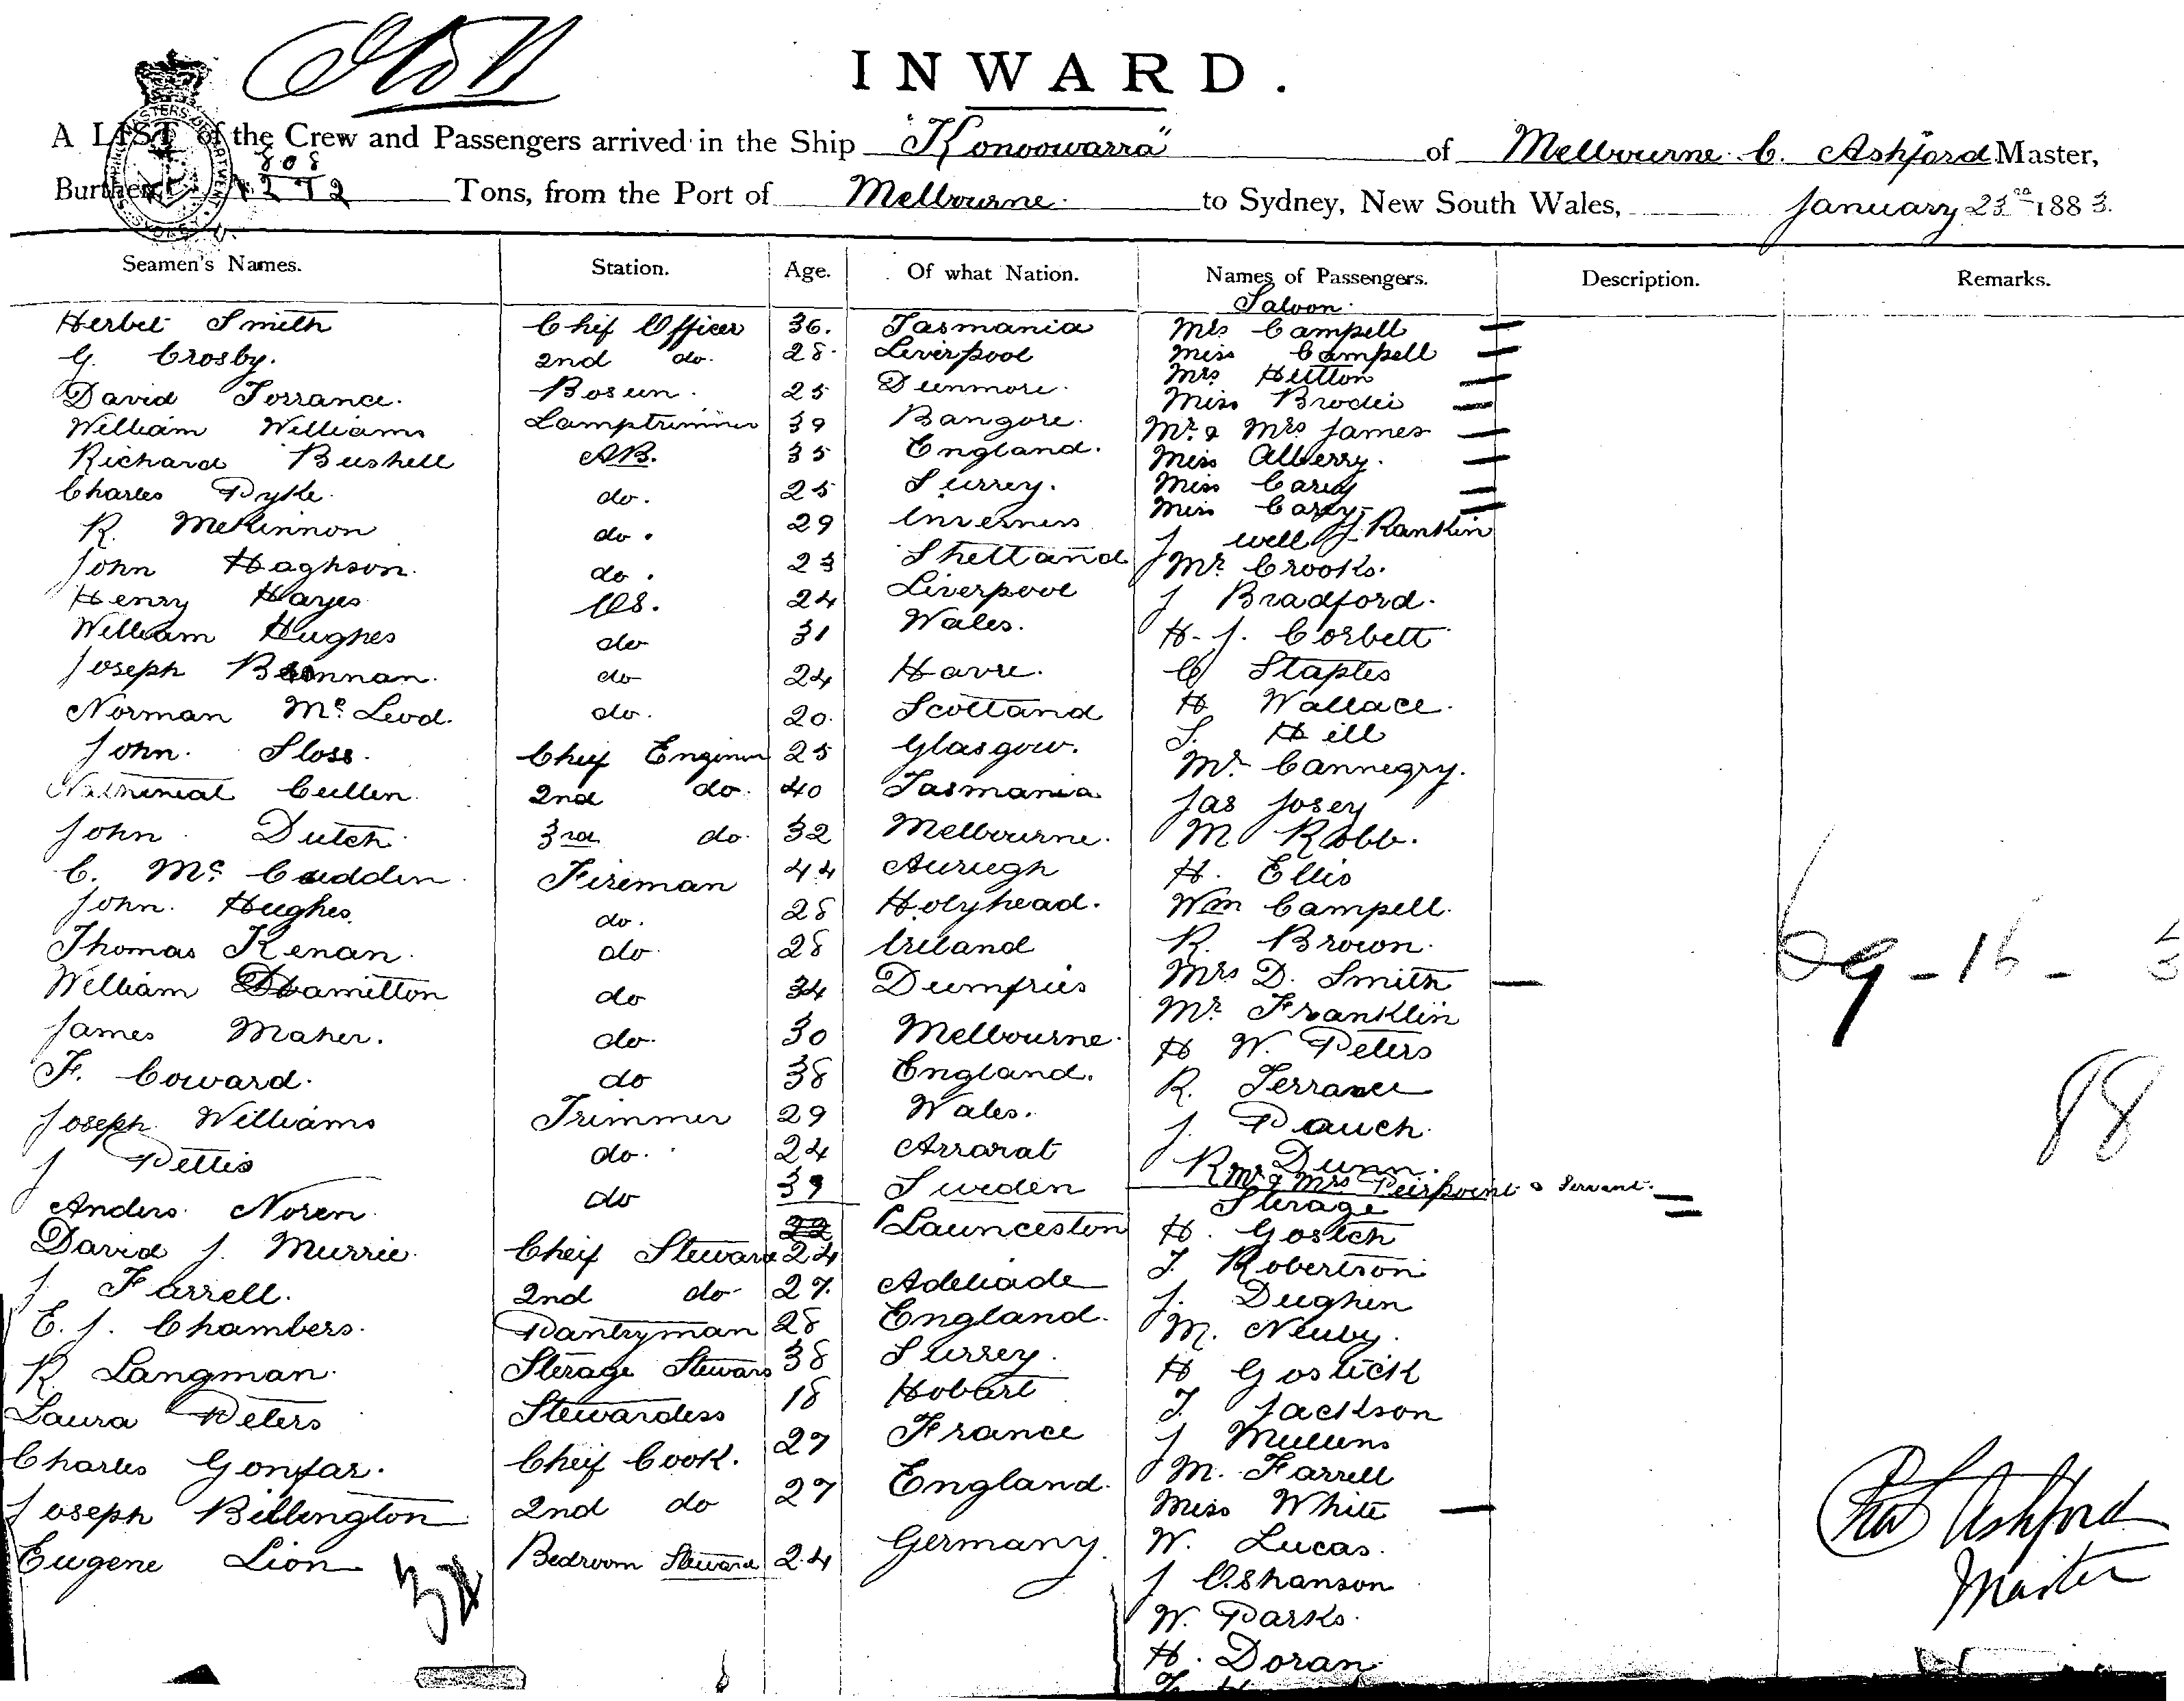 INWARD.
A LIST of the Crew and Passengers arrived in the Ship "Konoowarra" of Melbourne C. Ashford Master,
808
Burthen 1272 Tons, from the Port of Melbourne. to Sydney, New South Wales, January 23rd 1883.
Seamen's Names. Station. Age. Of what Nation. Names of Passengers. Description. Remarks.
Saloon.
Herbet Smith Chif Officer 36. Tasmania Mrs Campell
G. Crosby. 2nd do. 28. Liverpool Miss Campell
Mrs Hutton
David Torrance. Bosun. 25 Dunmore. Miss Brodie
William Williams Lamptrimmer 39 Bangore. Mr & Mrs James
Richard Bushell AB. 35 England. Miss Alberry.
Charles Pyke. do. 25 Surrey. Miss Carey
Miss Carey
R. McKinnon do. 29 Inverness J well J. Rankin
John Haghson. do. 23 Shetland Mr Crooks.
Henry Hayes OS. 24 Liverpool J Bradford.
William Hughes do 31 Wales. H. J. Corbett
Joseph Brennan. do 24 Havre. C Staples
Norman Mc Leod. do. 20. Scotland H Wallace.
S. Hill
John. Sloss. Chief Enginer 25 Glasgow. Mr Cannegry.
Nathinial Cullen. 2nd do. 40 Tasmania Jas Josey
John Dutch. 3rd do. 32 Melbourne. M Robb.
C. Mc Cudden Fireman 44 Auriegh H. Ellis
John. Hughes. do. 28 Holyhead. Wm Campell.
Thomas Kenan. do. 28 Ireland R. Brown.
William Hamilton do 34 Dumfries Mrs D. Smith
Mr Franklin
James Maher. do. 30 Melbourne. H W. Peters
F. Coward. do 38 England. R. Terrance
Joseph Williams Trimmer 29 Wales. J. Pauch.
J Pettis do. 24 Ararat R Dunn.
Mr & Mrs Peirpoint & Servant.
Anders. Noren. do 39 Sweden Sterage
22
David J. Murrie. Cheif Steward 24 Launceston H. Gostch
J. Farrell. 2nd do 27. Adeliade T Robertson
J. Dughen
E. J. Chambers. Pantryman 28 England. M. Newby.
R. Langman. Sterage Steward 38 Surrey. H Gostick
Laura Peters Stewardess 18 Hobart T. Jackson
J Mullens
Charles Gonfar. Cheif Cook. 27 France M. Farrell
Joseph Billington 2nd do 27 England. Miss White
Eugene Lion Bedroom Steward 24 Germany. W. Lucas.
J Oshanson
W. Parks.
H. Doran
69-16-
88
Chas Ashford
Master